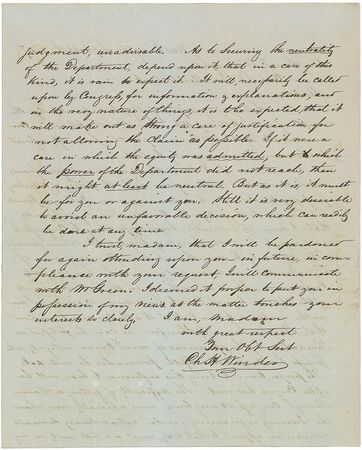 judgment, unadvisable. As to securing the neutrality
of the Department, depend upon it, that in a case of this
kind, it is vain to expect it. It will, necessarily be called
upon by Congress, for information & explanations, and
in the very nature of things, it is to be expected, that it
will make out as strong a case of justification for
not allowing the claim as possible. If it were a
case in which the equity was admitted, but to which
the power of the Department did not reach, then
it might at least be neutral. But as it is, it must
be for you or against you. Still it is very desirable
to avoid an unfavorable decision, which can readily
be done at any time.
I trust, madam, that I will be pardoned
for again obtruding upon you – in future, in com-
pliance with your request, I will communicate
with Mr Green. I deemed it proper to put you in
possession of my news, as the matter touches your
interests so closely. I am, Madam
with great respect
Your Obt Svt
Ch H Winder